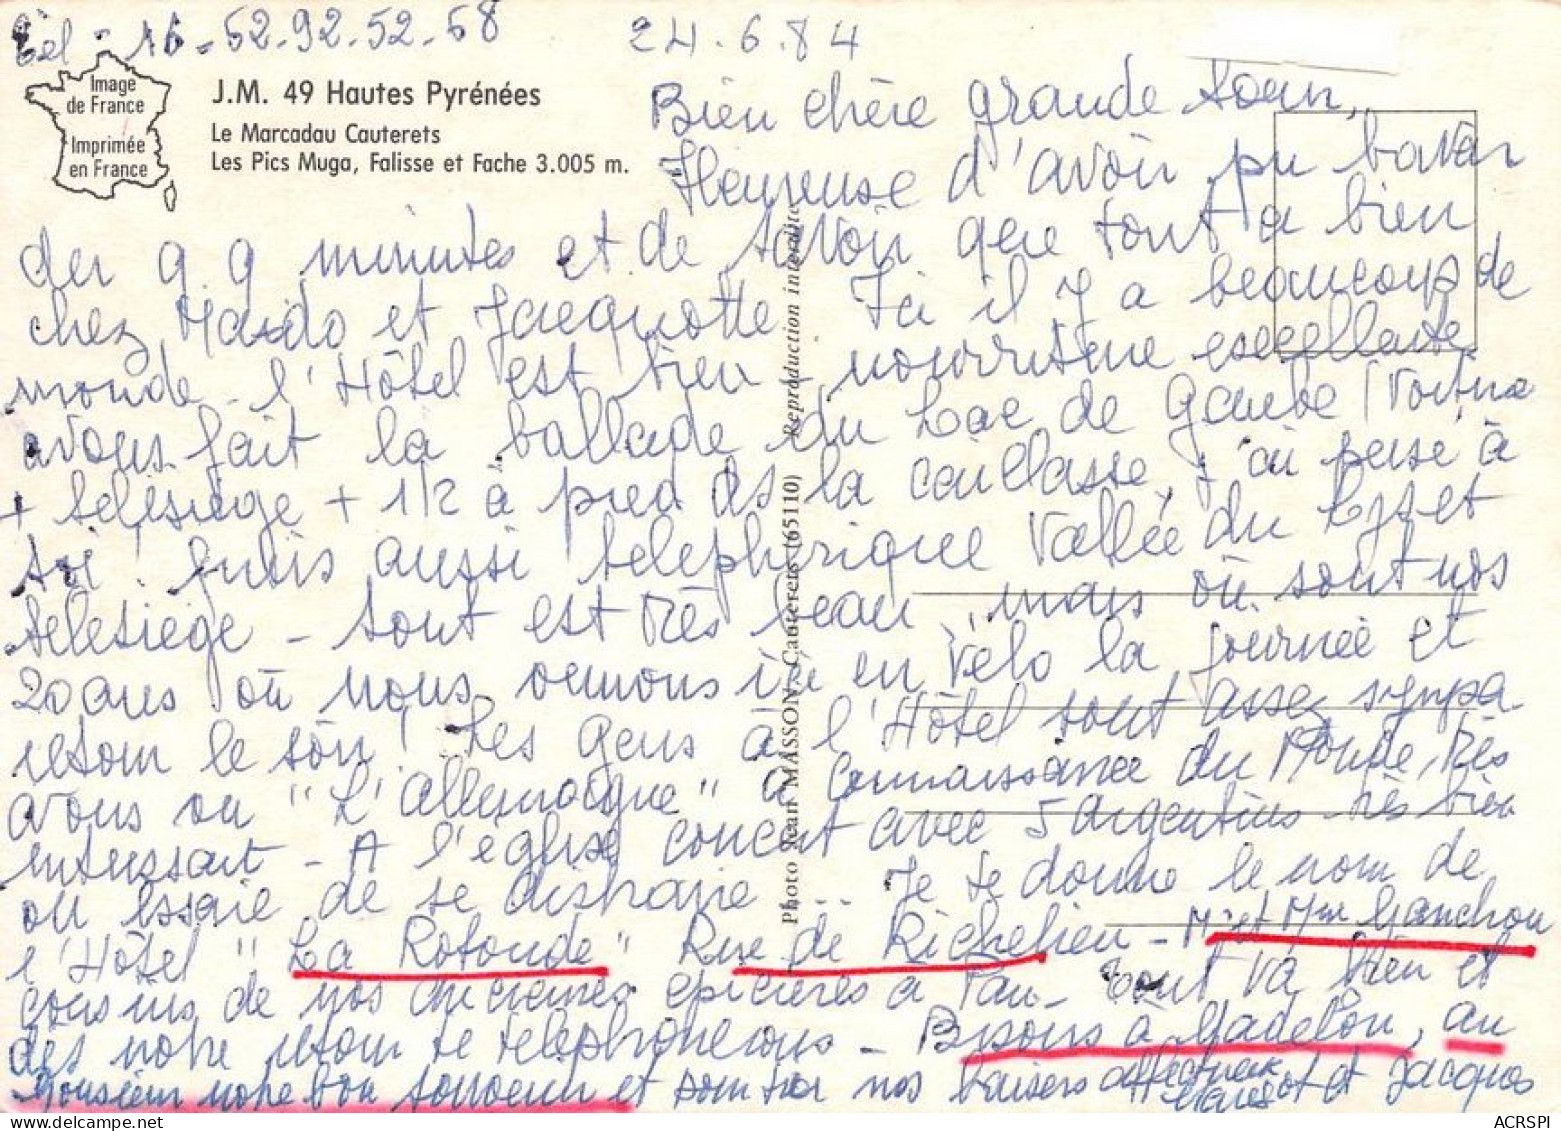 Tél - 16-62.92.52.68
24.6.84
Image
de France
Imprimée
en France
J.M. 49 Hautes Pyrénées
Le Marcadau Cauterets
Les Pics Muga, Falisse et Fache 3.005 m.
Bien chère grande soeur,
Heureuse d'avoir pu bavar
der q q minutes et de savoir que tout a bien
chez et Jacquotte Ici il y a beaucoup de
monde - l'Hôtel est bien - nourriture excellente
avons fait la ballade du Lac de Gaube (voiture
+ télésiège + 1/2 à pied ds la caillasse, j'ai pensé à
toi. puis aussi téléphérique Vallée du Lys et
télésiège - tout est très beau, mais où sont nos
20 ans où nous venions ici en vélo la journée et
retour le soir! Les gens à l'Hôtel sont assez sympa-
avons vu "L'allemagne" à connaissance du Monde, très
intéressant - A l'église concert avec 5 argentins très bien
on essaie de se distraire ... Je te donne le nom de
l'Hôtel "La Rotonde" Rue de Richelieu - Mr et Mme Ganchou
cousins de nos anciennes épicières à Pau - tout va bien et
dès notre retour te téléphonerons - Bisous à Madelon, au
Monsieur notre bon souvenir et pour toi nos baisers affectueux
et Jacques
Photo Jean MASSON Cauterets (65110) Reproduction interdite
ACRSPI